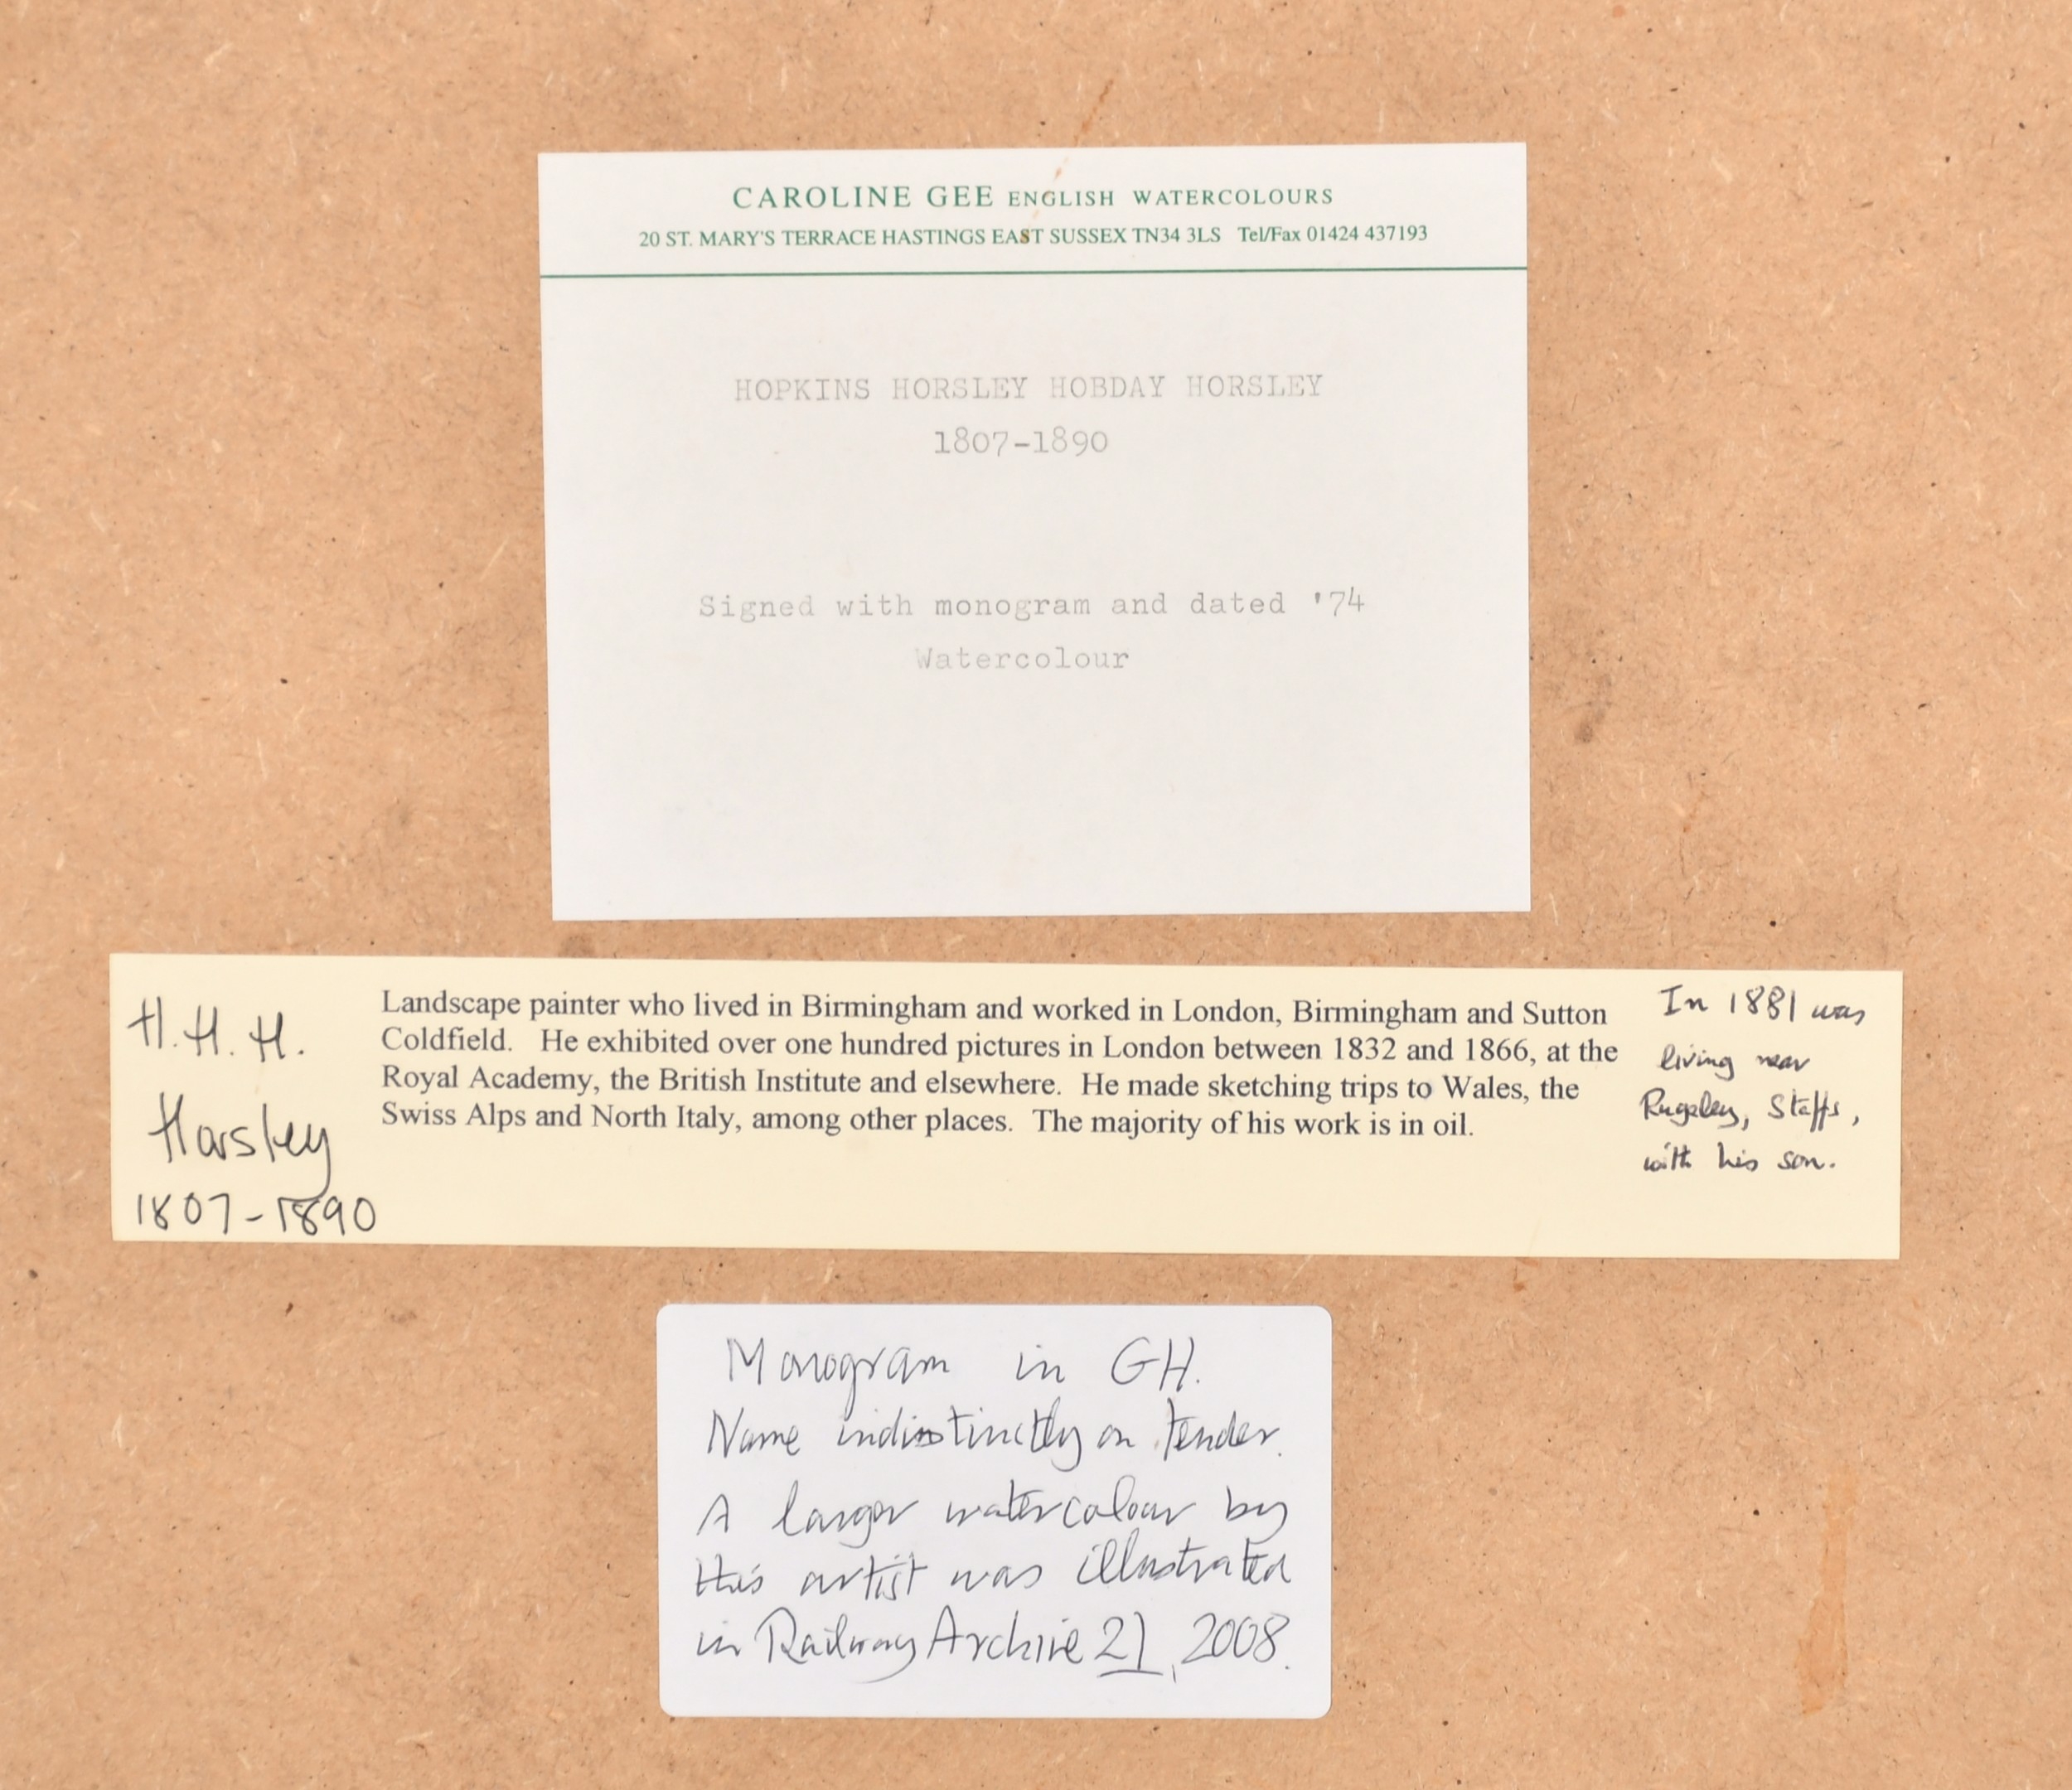 CAROLINE GEE ENGLISH WATERCOLOURS
20 ST. MARY'S TERRACE HASTINGS EAST SUSSEX TN34 3LS Tel/Fax 01424 437193
HOPKINS HORSLEY HOBDAY HORSLEY
1807-1890
Signed with monogram and dated '74
Watercolour
H.H.H.
Horsley
1807-1890
Landscape painter who lived in Birmingham and worked in London, Birmingham and Sutton
Coldfield. He exhibited over one hundred pictures in London between 1832 and 1866, at the
Royal Academy, the British Institute and elsewhere. He made sketching trips to Wales, the
Swiss Alps and North Italy, among other places. The majority of his work is in oil.
In 1881 was
living near
Rugeley, Staffs,
with his son.
Monogram in GH.
Name indistinctly on tender.
A larger watercolour by
this artist was illustrated
in Railway Archive 21, 2008.